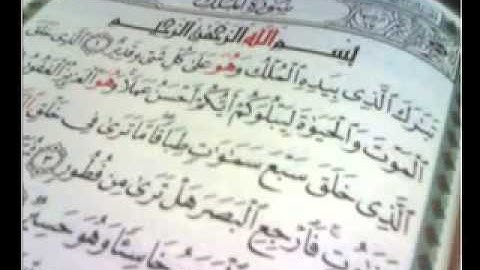 سورة الملك
بسم الله الرحمن الرحيم
تبرك الذى بيده الملك وهو على كل شىء قدير ١ الذى خلق
الموت والحيوة ليبلوكم أيكم أحسن عملا وهو العزيز الغفور
الذى خلق سبع سموت طباقا ما ترى فى خلق
فارجع البصر هل ترى من فطور ٣
خاسئا وهو حسير